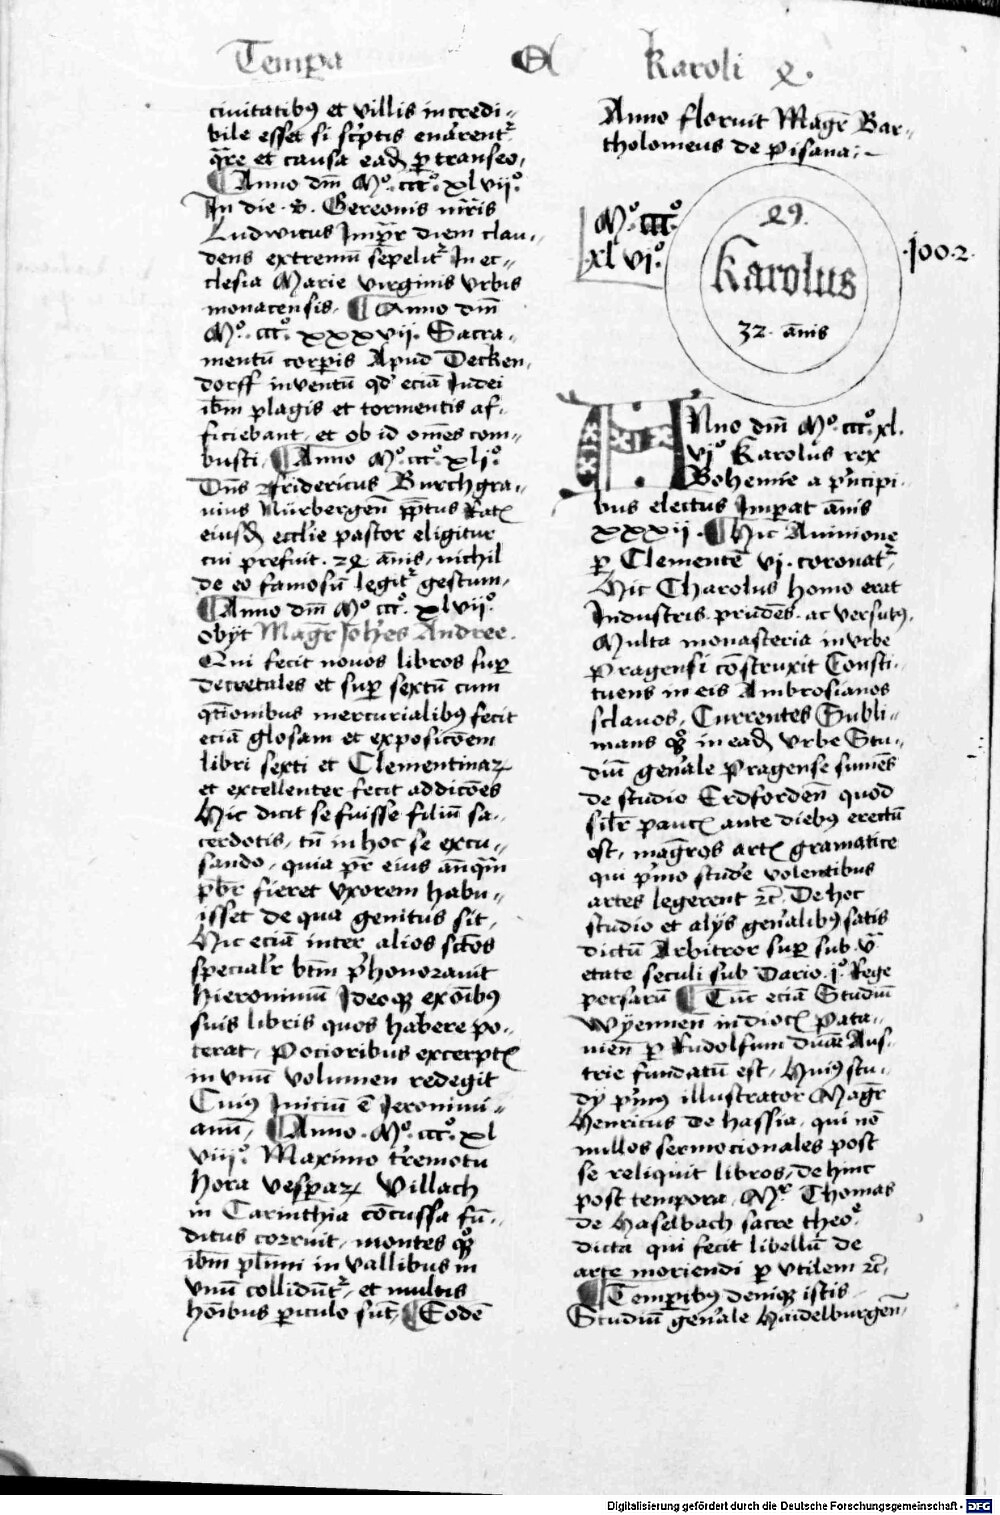 Tempa
Karoli 4.
ciuitatibꝰ et villis incredi-
bile esset si sc̾ptis ena̾rent᷑
qr̄e et causa ead̄ p̱ transeo.
¶ Anno dm̄ Mº. cccº. xlvijº.
In die .S. Gereonis m̄ris
Ludwicus Imp̱r diem clau-
dens extremū sepelit᷑ In ec-
clesia Marie virginis vrbis
monacensis. ¶ Anno dm̄
Mº. cccº. xxxvij. Sacra-
mentū corp̱is Apud Decken-
dorff inventū qd̾ eciā Iudei
ibm̄ plagis et tormentis af-
ficiebant, et ob id om̄es com-
busti. ¶ Anno Mº. cccº. xljº.
Dn̄s Fridericus Burchgra-
uius Nürbergen̄ pp̄tus Ratꝭ
eiusd̄ eccl̄ie pastor eligitur
cui prefuit. 24 an̄is, nichil
de eo famosū legit᷑ gestum,
¶ Anno dm̄ Mº cccº. xlvijº.
obyt Magr̄ Joh̄es Andree.
Qui fecit nouos libros sup̱
decretales et sup̱ sextū cum
qt̄ionibus mercurialibꝰ fecit
eciā glosam et exposicōem
libri sexti et Clementinaꝝ
et excellenter fecit addicōes
Hic dicit se fuisse filiū sa-
cerdotis, tn̄ in hoc se excu-
sando, quia pr̄ eius an̄q̄m
pb̄r fieret vxorem habu-
isset de qua genitus sit,
Hic eciā inter alios sc̄tos
special̾r btm̄ p̾honorauit
Hieronimū Ideoqꝫ ex oībꝰ
suis libris quos habere po-
terat, Pocioribus excerptꝭ
in vnū volumen redegit
Cuiꝰ Iniciū ē Jeronimi-
anū, ¶ Anno. Mº. cccº. xl
viijº. Maximo t̾remotu
hora vesp̱aꝝ Villach
in Carinthia cōcussa fū-
ditus corruit, montes qꝫ
ibm̄ pl̄imi in vallibus in
vnū collidūt᷑, et multis
hoībus p̱iculo sūt, ¶ Eodē
Anno floruit Magr̄ Bar-
tholomeus de pisana;
Mº. cccº.
xlvjº.
49.
Karolus
32. an̄is
.1002.
Anno dm̄ Mº. cccº. xl.
vjº Karolus rex
Bohemie a p̾ncipi-
bus electus Imp̱at an̄is
xxxij. ¶ Hic Auinione
p̱ Clementē vj. coronat᷑,
Hic Charolus homo erat
Industris. prudēs. ac versutꝰ.
Multa monasteria in vrbe
Pragensi cōstruxit Consti-
tuens in eis Ambrosianos
sclauos, Currentes Subli-
mans qꝫ in ead̄ vrbe Stu-
diū gen̾ale Pragense sumēs
de studio Erdforden̄ quod
sil̾r paucꝭ ante diebꝰ erectū
est, magr̄os artꝭ gramatice
qui p̾mo stud̾e volentibus
artes legerent ⁊c̄. De hoc
studio et alijs gen̾alibꝰ satis
dictū Arbitror sup̱ sub .v.
etate seculi sub Dario .jº. Rege
persarū ¶ Tūc eciā Studiū
Wÿennen̄ in diocꝭ Pata-
uien̄ p̱ Rudolfum ducē Aus-
trie fundatū est, Huiꝰ stu-
dÿ p̾mꝰ illustrator Magr̄
Henricus de hassia, qui nō
nullos sermocionales post
se reliquit libros, de hinc
post tempora, Mʳ Thomas
de Haselbach sacre theoᵉ
dicta qui fecit libellū de
arte moriendi p̱ vtilem ⁊c̄,
¶ Temp̱ibꝰ deniqꝫ istis
Studiū gen̾ale Haidelburgen̄,
Digitalisierung gefördert durch die Deutsche Forschungsgemeinschaft - DFG